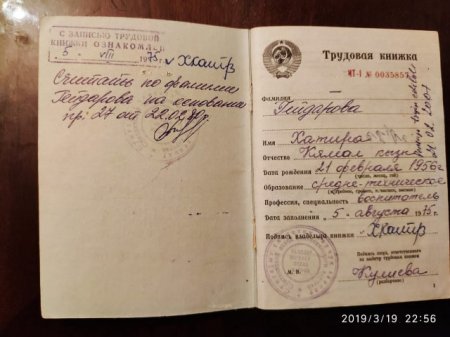 С ЗАПИСЬЮ ТРУДОВОЙ
КНИЖКИ ОЗНАКОМЛЕН
5 VIII 1975 г.
Считать по фамилии
Гейдарова на основании
пр. 27 от 22.02.
Трудовая книжка
НТ-I № 0035857
Фамилия
Гейдарова
Имя
Отчество Кямал кызы
Дата рождения 21 февраля 1956 г.
(число, месяц, год)
Образование средне-техническое
Профессия, специальность воспитатель
Дата заполнения 5 августа 1975 г.
Подпись владельца книжки
Подпись лица, ответственного
за выдачу трудовых книжек
М. П.
Кулиева
(разборчиво)
2019/3/19 22:56